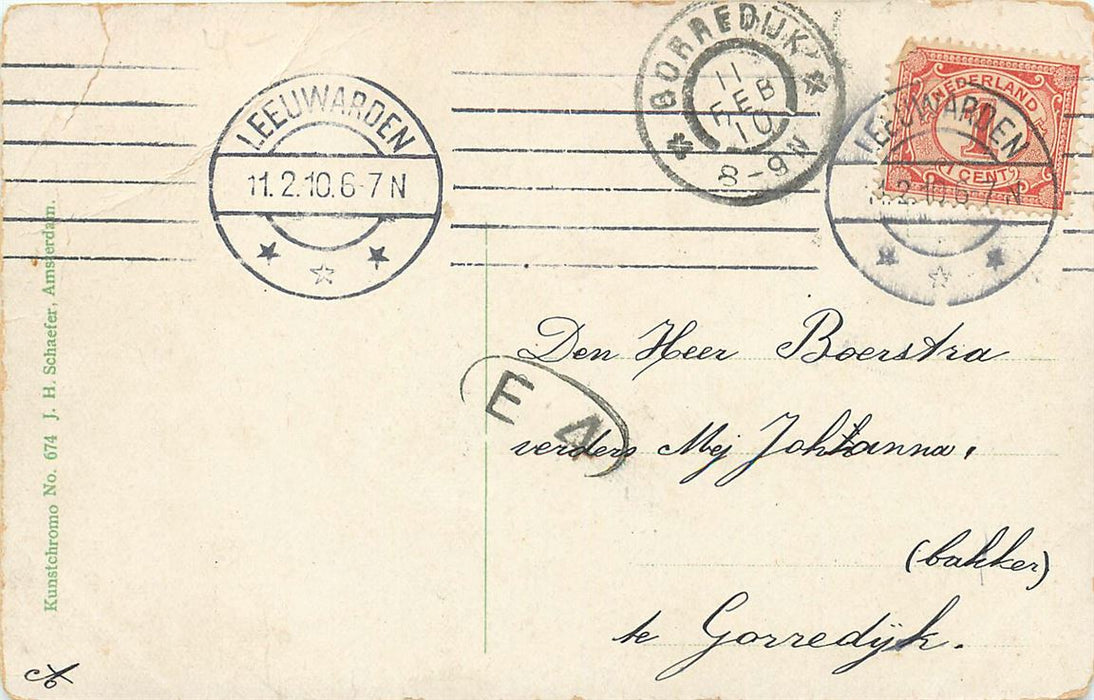 LEEUWARDEN
11.2.10.6-7 N
GORREDIJK
11
FEB
10
8-9N
NEDERLAND
1
1 CENT
LEEUWARDEN
11.2.10.6-7 N
Den Heer Boerstra
E 4
verders Mej Johhanna,
(bakker)
te Gorredijk.
Kunstchromo No. 674 J. H. Schaefer, Amsterdam.